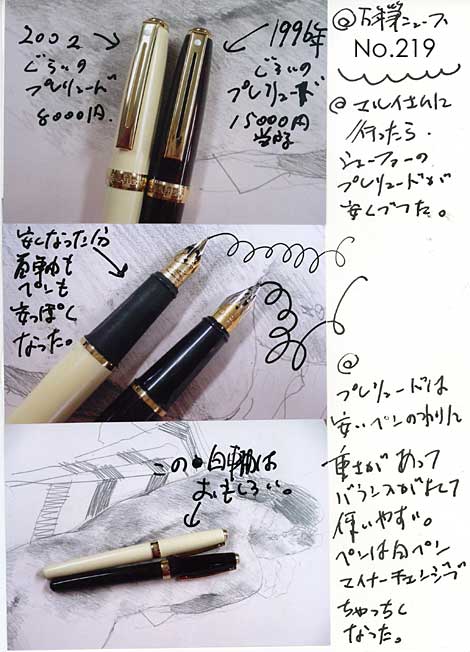 @万年筆ニュース
No.219
@マルイさんに
行ったら
シェーファーの
プレリュードが
安くなってた。
2002
ぐらいの
プレリュード
8000円.
1996年
ごろの
プレリュード
15000円
当時
安くなった分
首軸も
ペンも
安っぽく
なった。
@
プレリュードは
安いペンのわりに
重さがあって
バランスがよくて
使いやすい。
ペンは白ペン
マイナーチェンジで
ちゃっちく
なった。
この白軸は
おもしろい。